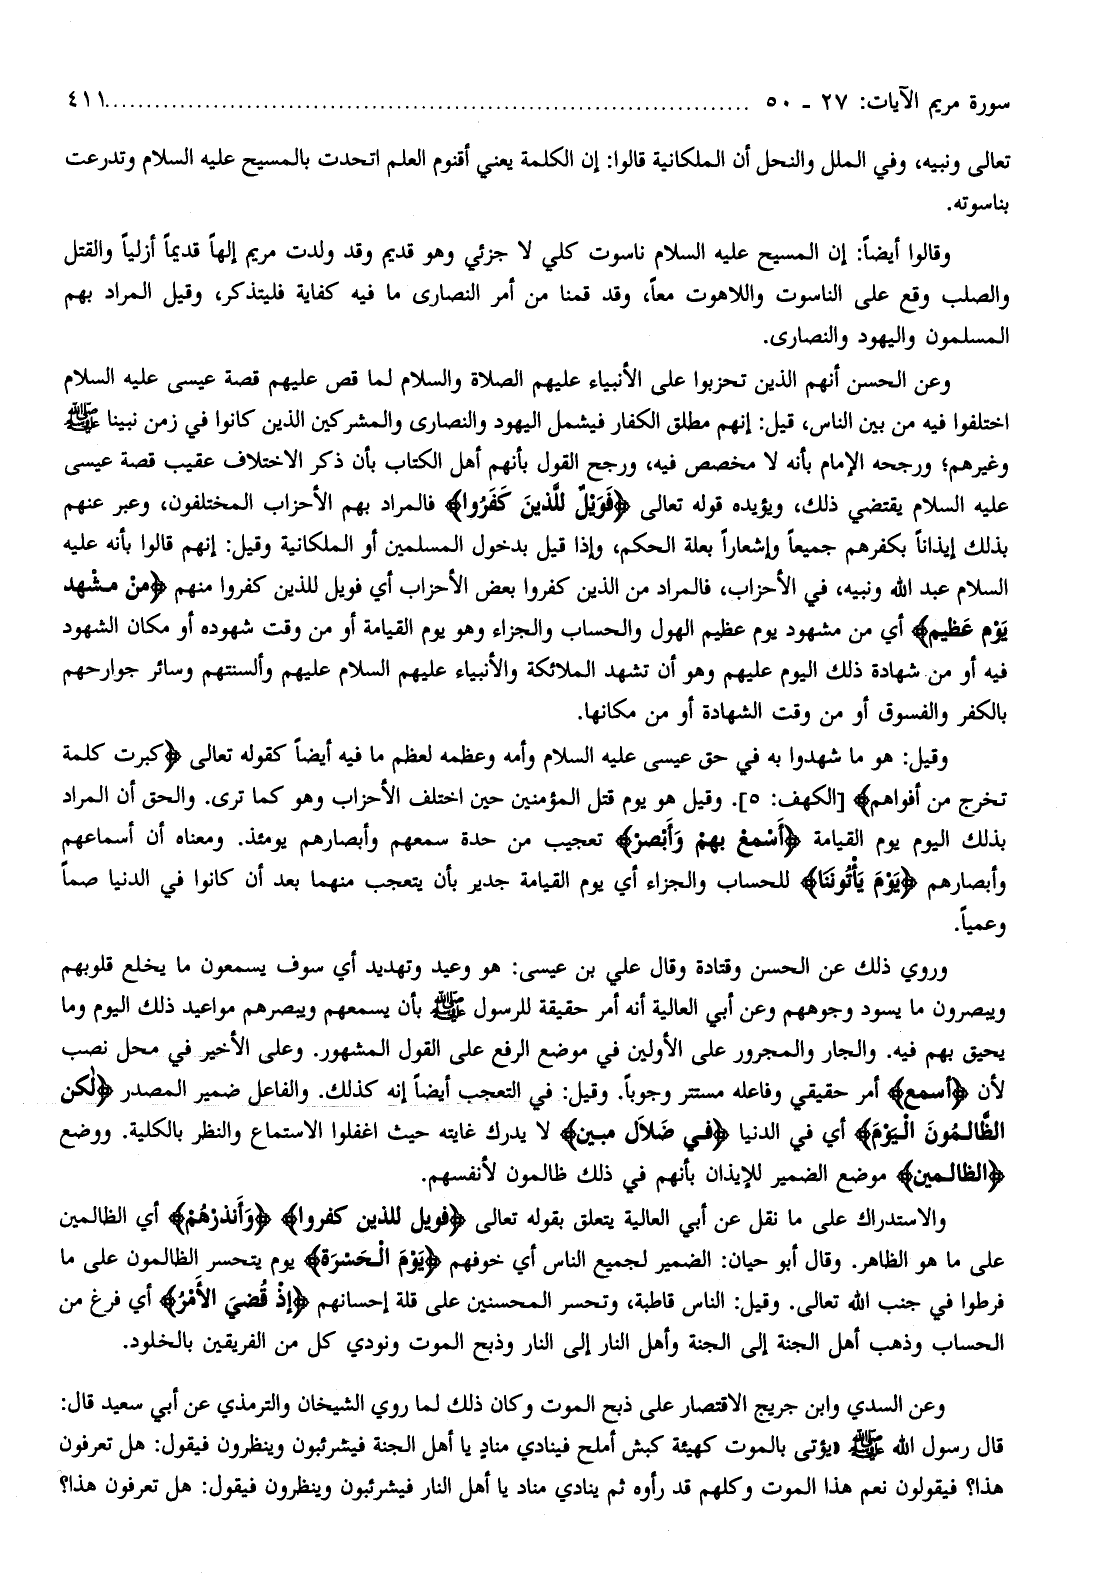 سورة مريم الآيات: ٢٧ ـ ٥٠ ................................................................................ ٤١١
تعالى ونبيه، وفي الملل والنحل أن الملكانية قالوا: إن الكلمة يعني أقنوم العلم اتحدت بالمسيح عليه السلام وتدرعت
بناسوته.
وقالوا أيضاً: إن المسيح عليه السلام ناسوت كلي لا جزئي وهو قديم وقد ولدت مريم إلهاً قديماً أزلياً والقتل
والصلب وقع على الناسوت واللاهوت معاً، وقد قمنا من أمر النصارى ما فيه كفاية فليتذكر، وقيل المراد بهم
المسلمون واليهود والنصارى.
وعن الحسن أنهم الذين تحزبوا على الأنبياء عليهم الصلاة والسلام لما قص عليهم قصة عيسى عليه السلام
اختلفوا فيه من بين الناس، قيل: إنهم مطلق الكفار فيشمل اليهود والنصارى والمشركين الذين كانوا في زمن نبينا ﷺ
وغيرهم؛ ورجحه الإمام بأنه لا مخصص فيه، ورجح القول بأنهم أهل الكتاب بأن ذكر الاختلاف عقيب قصة عيسى
عليه السلام يقتضي ذلك، ويؤيده قوله تعالى ﴿فَوَيْلٌ لِلَّذينَ كَفَرُوا﴾ فالمراد بهم الأحزاب المختلفون، وعبر عنهم
بذلك إيذاناً بكفرهم جميعاً وإشعاراً بعلة الحكم، وإذا قيل بدخول المسلمين أو الملكانية وقيل: إنهم قالوا بأنه عليه
السلام عبد الله ونبيه، في الأحزاب، فالمراد من الذين كفروا بعض الأحزاب أي فويل للذين كفروا منهم ﴿منْ مشْهد
يَوْم عَظيم﴾ أي من مشهود يوم عظيم الهول والحساب والجزاء وهو يوم القيامة أو من وقت شهوده أو مكان الشهود
فيه أو من شهادة ذلك اليوم عليهم وهو أن تشهد الملائكة والأنبياء عليهم السلام عليهم وألسنتهم وسائر جوارحهم
بالكفر والفسوق أو من وقت الشهادة أو من مكانها.
وقيل: هو ما شهدوا به في حق عيسى عليه السلام وأمه وعظمه لعظم ما فيه أيضاً كقوله تعالى ﴿كبرت كلمة
تخرج من أفواهم﴾ [الكهف: ٥]. وقيل هو يوم قتل المؤمنين حين اختلف الأحزاب وهو كما ترى. والحق أن المراد
بذلك اليوم يوم القيامة ﴿أَسْمعْ بهمْ وَأَبْصرْ﴾ تعجيب من حدة سمعهم وأبصارهم يومئذ. ومعناه أن أسماعهم
وأبصارهم ﴿يَوْمَ يَأْتُونَنَا﴾ للحساب والجزاء أي يوم القيامة جدير بأن يتعجب منهما بعد أن كانوا في الدنيا صماً
وعمياً.
وروي ذلك عن الحسن وقتادة وقال علي بن عيسى: هو وعيد وتهديد أي سوف يسمعون ما يخلع قلوبهم
ويبصرون ما يسود وجوههم وعن أبي العالية أنه أمر حقيقة للرسول ﷺ بأن يسمعهم ويبصرهم مواعيد ذلك اليوم وما
يحيق بهم فيه. والجار والمجرور على الأولين في موضع الرفع على القول المشهور. وعلى الأخير في محل نصب
لأن ﴿أسمع﴾ أمر حقيقي وفاعله مستتر وجوباً. وقيل: في التعجب أيضاً إنه كذلك. والفاعل ضمير المصدر ﴿لٰكن
الظَّالمُونَ الْيَوْمَ﴾ أي في الدنيا ﴿في ضَلاَل مبين﴾ لا يدرك غايته حيث اغفلوا الاستماع والنظر بالكلية. ووضع
﴿الظالمين﴾ موضع الضمير للإيذان بأنهم في ذلك ظالمون لأنفسهم.
والاستدراك على ما نقل عن أبي العالية يتعلق بقوله تعالى ﴿فويل للذين كفروا﴾ ﴿وَأَنذرْهُمْ﴾ أي الظالمين
على ما هو الظاهر. وقال أبو حيان: الضمير لجميع الناس أي خوفهم ﴿يَوْمَ الْحَسْرَة﴾ يوم يتحسر الظالمون على ما
فرطوا في جنب الله تعالى. وقيل: الناس قاطبة، وتحسر المحسنين على قلة إحسانهم ﴿إذْ قُضيَ الأَمْرُ﴾ أي فرغ من
الحساب وذهب أهل الجنة إلى الجنة وأهل النار إلى النار وذبح الموت ونودي كل من الفريقين بالخلود.
وعن السدي وابن جريج الاقتصار على ذبح الموت وكان ذلك لما روي الشيخان والترمذي عن أبي سعيد قال:
قال رسول الله ﷺ «يؤتى بالموت كهيئة كبش أملح فينادي منادٍ يا أهل الجنة فيشرئبون وينظرون فيقول: هل تعرفون
هذا؟ فيقولون نعم هذا الموت وكلهم قد رأوه ثم ينادي مناد يا أهل النار فيشرئبون وينظرون فيقول: هل تعرفون هذا؟